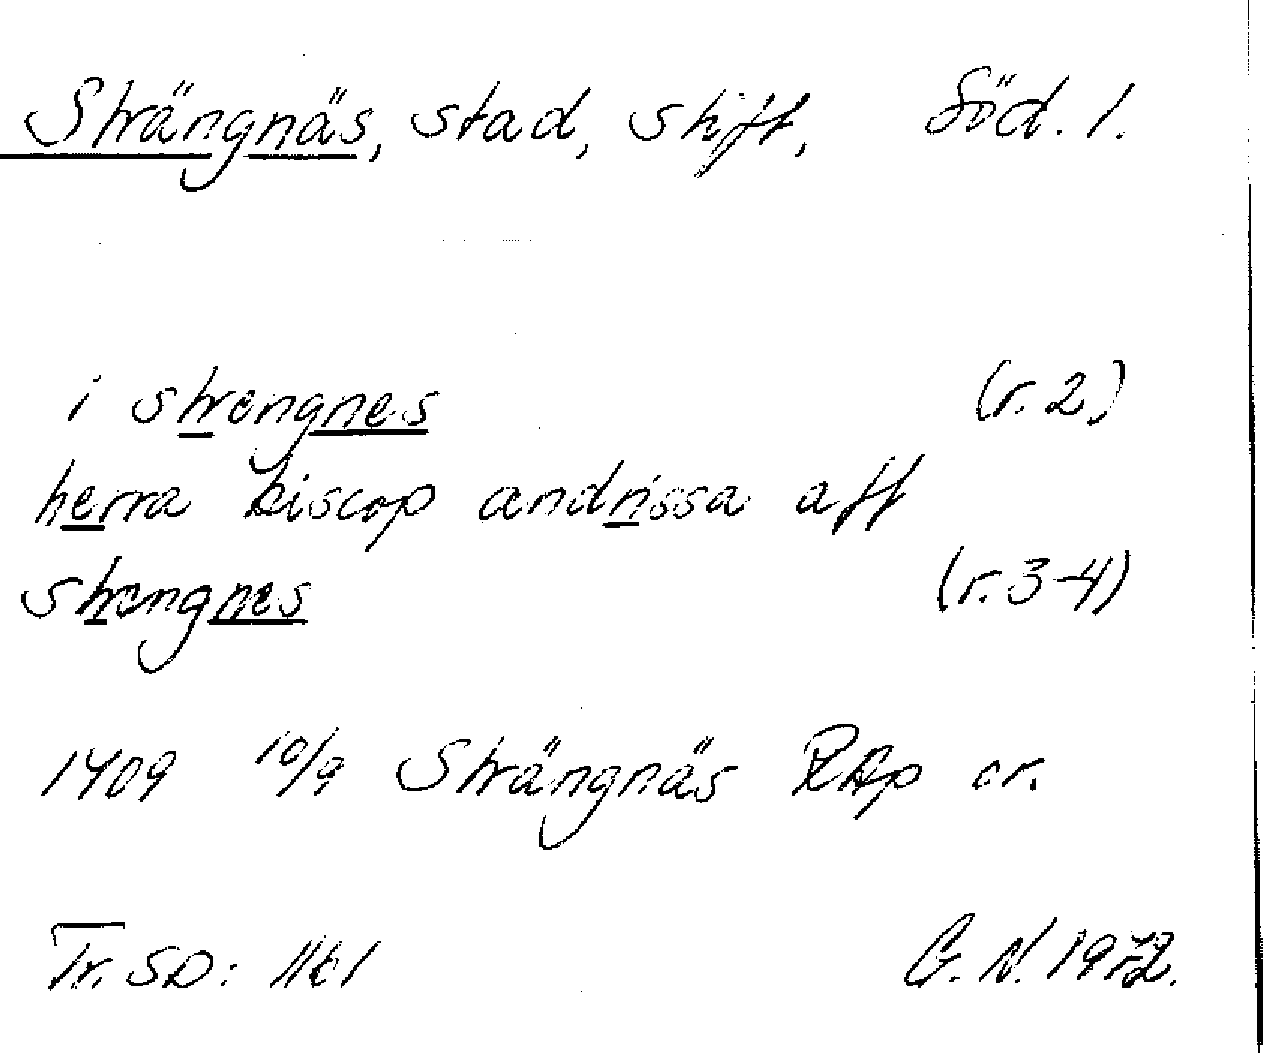 Strängnäs, stad, stift, Söd. l.
i strengnes (r. 2)
herra biscop andrissa aff
strengnes (r. 3-4)
1409 10/9 Strängnäs RAp or.
Tr. SD: 1161 G. N. 1972.